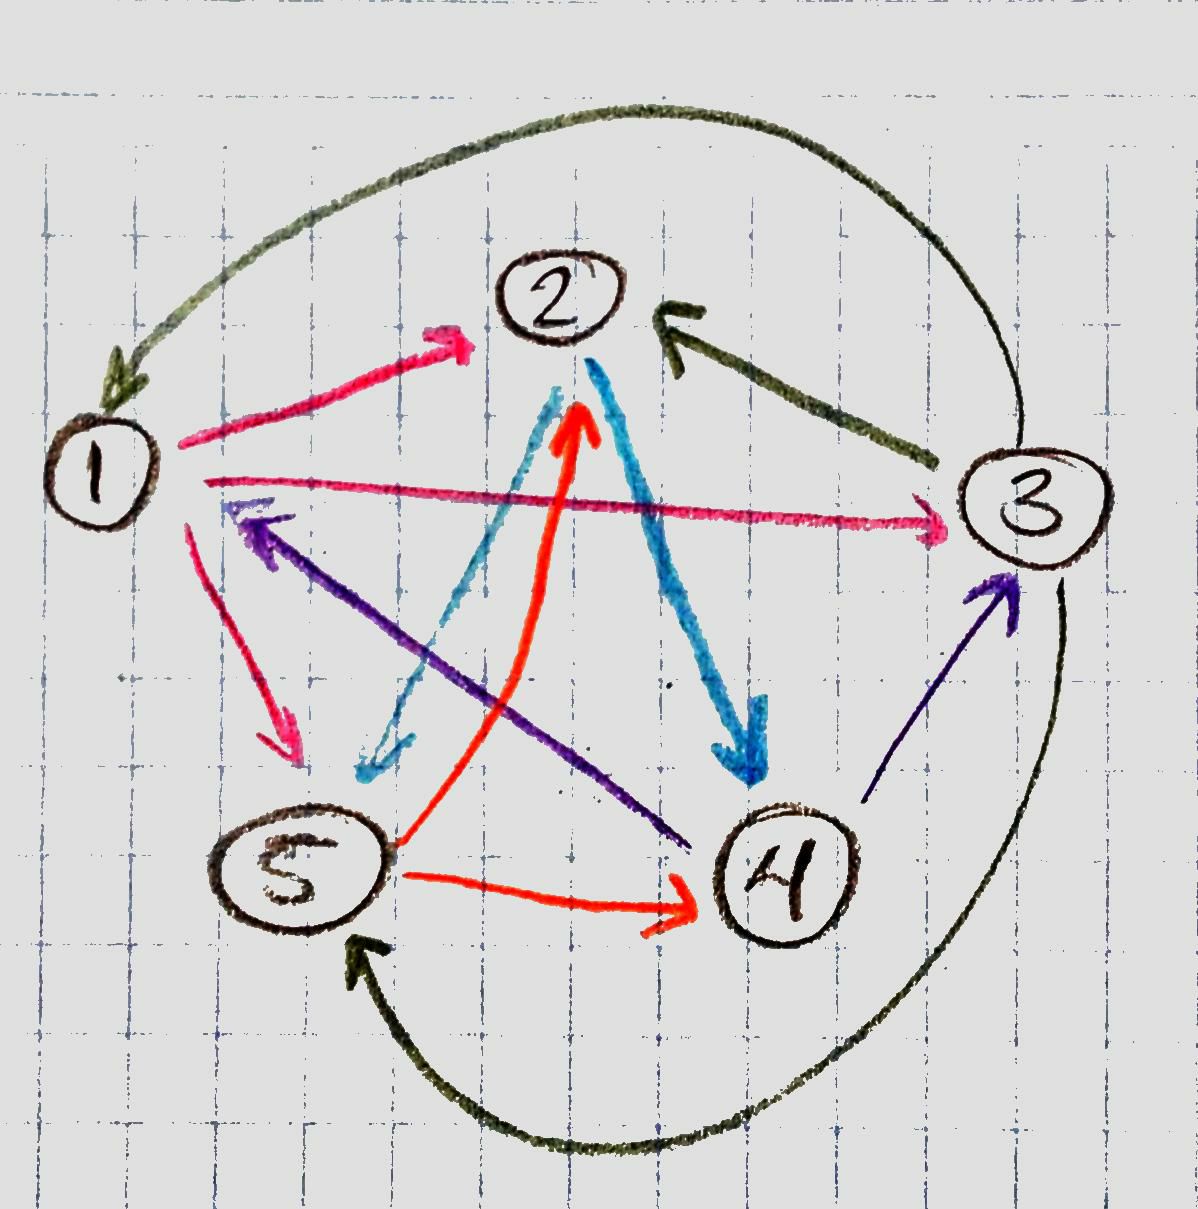 2
1
3
5
4